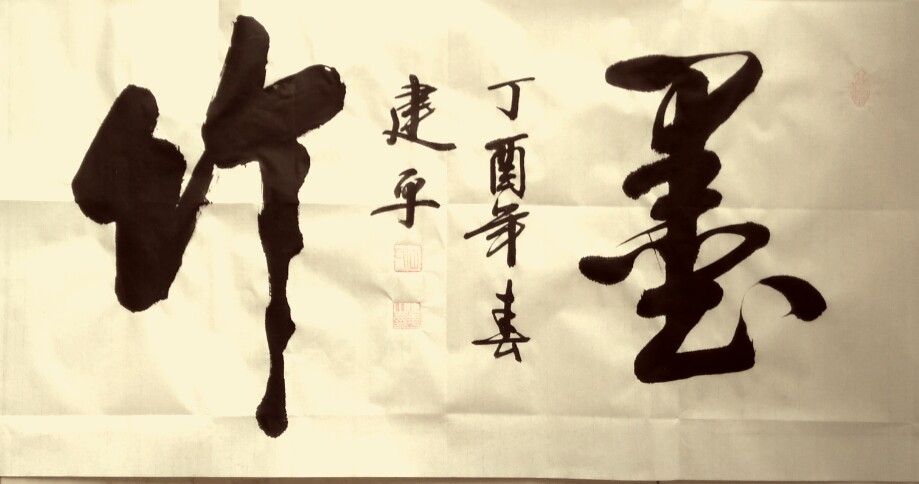 墨
丁酉年春
建平
竹